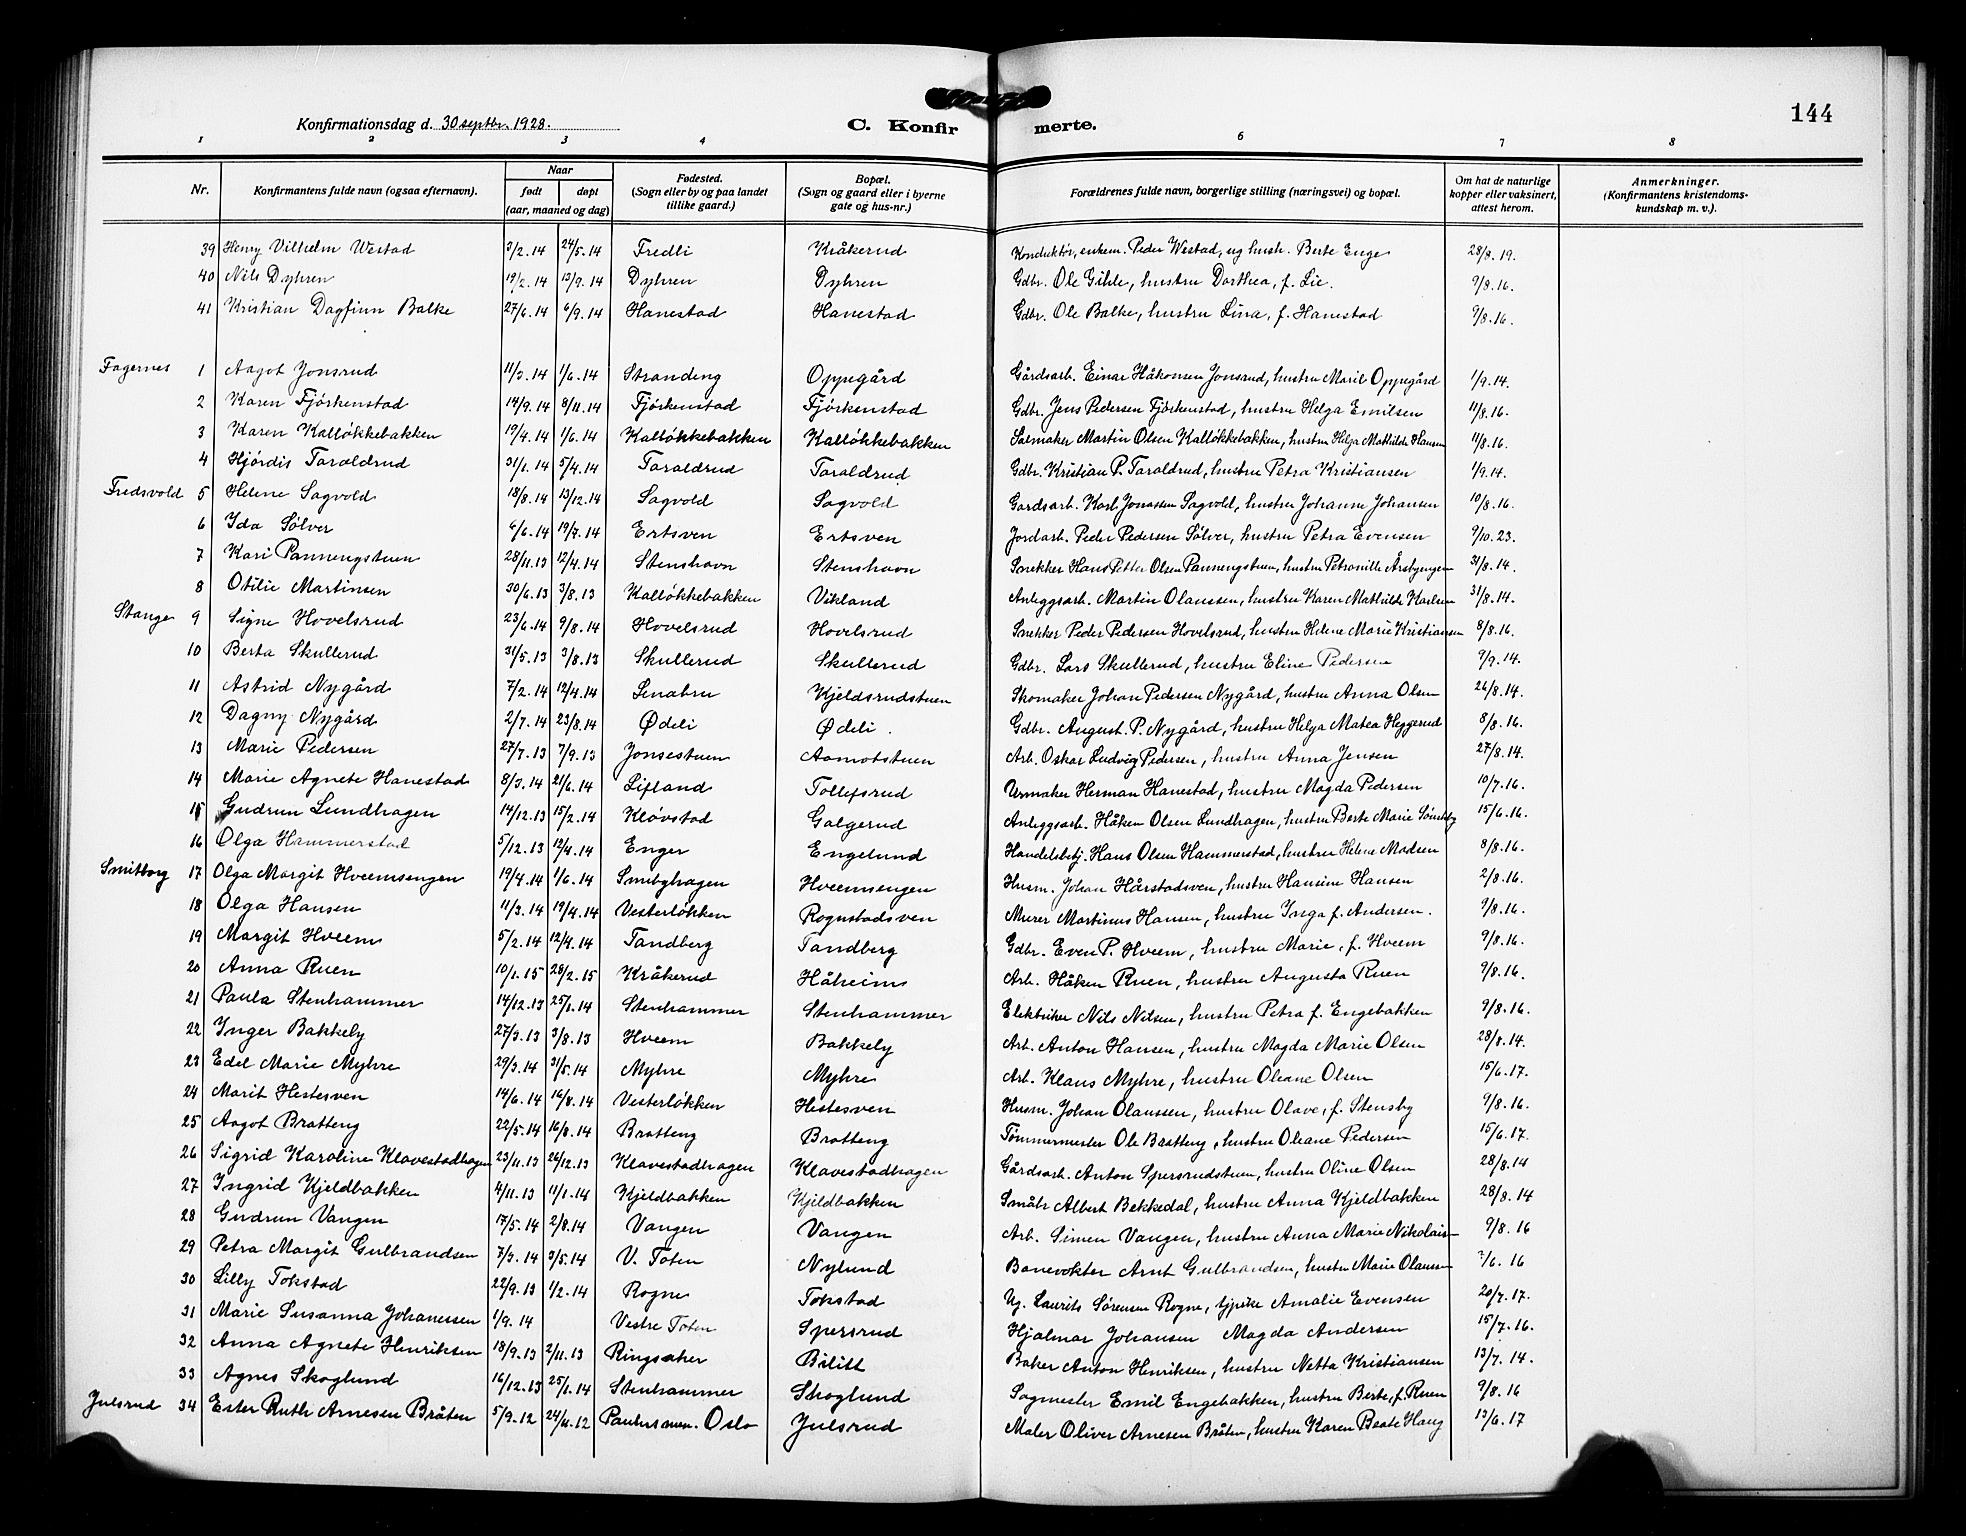 144
Konfirmationsdag d. 30 septbr. 1928.
C. Konfirmerte.
1 2 3 4 6 7 8
Nr. Konfirmantens fulde navn (ogsaa efternavn). Naar født døpt (aar, maaned og dag) Fødested. (Sogn eller by og paa landet tillike gaard.) Bopæl. (Sogn og gaard eller i byerne gate og hus-nr.) Forældrenes fulde navn, borgerlige stilling (næringsvei) og bopæl. Om hat de naturlige kopper eller vaksinert, attest herom. Anmerkninger. (Konfirmantens kristendomskundskap m. v.).
39 Henry Vilhelm Westad 3/2.14 24/5.14 Fredli Kråkerud Konduktør, enkem. Peder Westad, ug hush. Berte Enge 28/8.19.
40 Nils Dyhren 19/2.14 13/9.14 Dyhren Dyhren Gdbr. Ole Gihle, hustru Dorthea, f. Lie. 9/8.16.
41 Kristian Dagfinn Balke 27/6.14 6/9.14 Hanestad Hanestad Gdbr. Ole Balke, hustru Lina, f. Hanestad 9/8.16.
Fagernes 1 Aagot Jonsrud 11/3.14 1/6.14 Strandeng Oppegård Gårdsarb. Einar Håkonsen Jonsrud, hustru Marie Oppegård 1/9.14.
2 Karen Fjørkenstad 14/9.14 8/11.14 Fjørkenstad Fjørkenstad Gdbr. Jens Pedersen Fjørkenstad, hustru Helga Emilsen 11/8.16.
3 Karen Kalløkkebakken 19/4.14 1/6.14 Kalløkkebakken Kalløkkebakken Salmaker Martin Olsen Kalløkkebakken, hustru Helga Mathilde Hansen 11/8.16.
4 Hjørdis Taraldrud 31/1.14 5/4.14 Taraldrud Taraldrud Gdbr. Kristian P. Taraldrud, hustru Petra Kristiansen 1/9.14.
Fredsvold 5 Helene Sagvold 18/8.14 13/12.14 Sagvold Sagvold Gardsarb. Karl Jonassen Sagvold, hustru Johanne Johansen 10/8.16.
6 Ida Sølver 6/6.14 19/7.14 Ertsven Ertsven Jordarb. Peder Pedersen Sølver, hustru Petra Evensen 9/10.23.
7 Kari Pannengstuen 28/11.13 12/4.14 Stenshavn Stenshavn Snekker Hans Petter Olsen Pannengstuen, hustru Petronille Årsbyengen 31/8.14.
8 Otilie Martinsen 30/6.13 3/8.13 Kalløkkebakken Vikland Anleggsarb. Martin Olaussen, hustru Karen Mathilde Karlsen 31/8.14.
Stange 9 Signe Hovelsrud 23/6.14 9/8.14 Hovelsrud Hovelsrud Snekker Peder Pedersen Hovelsrud, hustru Helene Marie Kristiansen 8/8.16.
10 Berta Skullerud 31/5.13 3/8.13 Skullerud Skullerud Gdbr. Lars Skullerud, hustru Eline Pedersen 9/9.14.
11 Astrid Nygård 7/2.14 12/4.14 Lenabru Kjeldsrudstuen Skomaker Johan Pedersen Nygård, hustru Anna Olsen 26/8.14.
12 Dagny Nygård 2/7.14 23/8.14 Ødeli Ødeli. Gdbr. August. P. Nygård, hustru Helga Matea Heggerud 8/8.16.
13 Marie Pedersen 27/7.13 7/9.13 Jonsestuen Aamotstuen Arb. Oskar Ludvig Pedersen, hustru Anna Jensen 27/8.14.
14 Marie Agnete Hanestad 8/3.14 21/6.14 Lifland Tollefsrud Urmaker Herman Hanestad, hustru Magda Pedersen 10/7.16.
15 Gudrun Lundhagen 14/12.13 15/2.14 Kløvstad Galgerud Anleggsarb. Håken Olsen Lundhagen, hustru Berte Marie 15/6.16.
16 Olga Hammerstad 5/12.13 12/4.14 Enger Engelund Handelsbetj. Hans Olsen Hammerstad, hustru Helene Madsen 8/8.16.
Smitborg 17 Olga Margit Hveemsengen 19/4.14 1/6.14 Smibyhagen Hveemsengen Husm. Johan Hårstadsven, hustru Hansine Hansen 2/8.16.
18 Olga Hansen 11/3.14 19/4.14 Vesterløkken Rognstadsven Murer Martinus Hansen, hustru Inga f. Andersen. 9/8.16.
19 Margit Hveem 5/2.14 12/4.14 Tandberg Tandberg Gdbr. Even P. Hveem, hustru Marie, f. Hveem 9/8.16.
20 Anna Ruen 10/1.15 28/2.15 Kråkerud Håheim Arb. Håken Ruen, hustru Augusta Ruen 9/8.16.
21 Paula Stenhammer 14/12.13 25/1.14 Stenhammer Stenhammer Elektriker Nils Nilsen, hustru Petra f. Engebakken 9/8.16.
22 Inger Bakkely 27/3.13 3/8.13 Hveem Bakkely Arb. Anton Hansen, hustru Magda Marie Olsen 28/8.14.
23 Edel Marie Myhre 29/3.14 31/5.14 Myhre Myhre Arb. Klaus Myhre, hustru Oleane Olsen 15/6.17.
24 Marit Hestesven 14/6.14 16/8.14 Vesterløkken Hestesven Husm. Johan Olaussen, hustru Olave, f. Stensby 9/8.16.
25 Aagot Bratteng 22/5.14 16/8.14 Bratteng Bratteng Tømmermester Ole Bratteng, hustru Oleane Pedersen 15/6.17.
26 Sigrid Karoline Klavestadhagen 23/11.13 26/12.13 Klavestadhagen Klavestadhagen Gårdsarb. Anton Spersrudstuen, hustru Oline Olsen 28/8.14
27 Ingrid Kjeldbakken 4/11.13 11/1.14 Kjeldbakken Kjeldbakken Småbr Albert Bekkedal, hustru Anna Kjeldbakken 28/8.14
28 Gudrun Vangen 17/5.14 2/8.14 Vangen Vangen Arb. Simen Vangen, hustru Anna Marie Nikolais 9/8.16
29 Petra Margit Gulbrandsen 7/3.14 3/5.14 V. Toten Nylund Banevokter Arnt Gulbrandsen, hustru Marie Olaussen 7/6.16
30 Lilly Tokstad 22/9.13 1/2.14 Rogne Tokstad Ug. Laurits Sørensen Rogne, tjpike Amalie Evensen 20/7.17.
31 Marie Susanna Johanessen 1/9.14 Vestre Toten Spersrud Hjalmar Johansen Magda Andersen 15/7.16.
32 Anna Agnete Henriksen 18/9.13 2/11.13 Ringsaker Bilitt Baker Anton Henriksen, hustru Netta Kristiansen 13/7.14.
33 Agnes Skoglund 16/12.13 25/1.14 Stenhammer Skoglund Sagmester Emil Engebakken, hustru Berte, f. Ruen 9/8.16
Julsrud 34 Ester Ruth Arnesen Bråten 5/9.12 24/11.12 Paulus men. Oslo Julsrud Maler Oliver Arnesen Bråten, hustru Karen Beate Haug 13/6.17